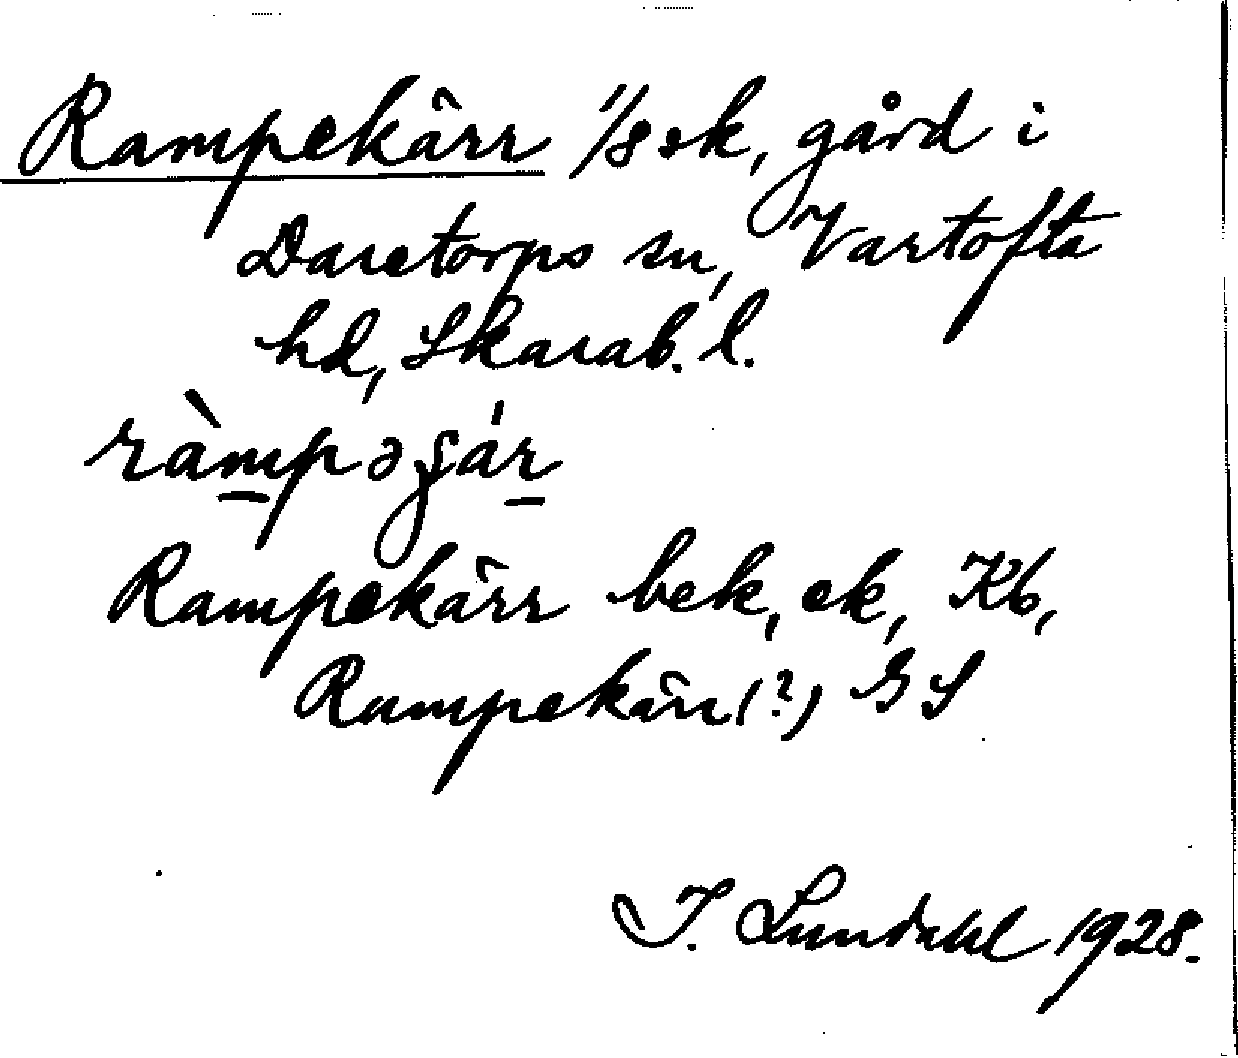 Rampekärr 1/8 sk, gård i
Daretorps sn, Vartofta
hd, Skarab. l.
ràmpəʃár
Rampekärr bek, ek, Kb,
Rampekärr(?) GS
I. Lundahl 1928.